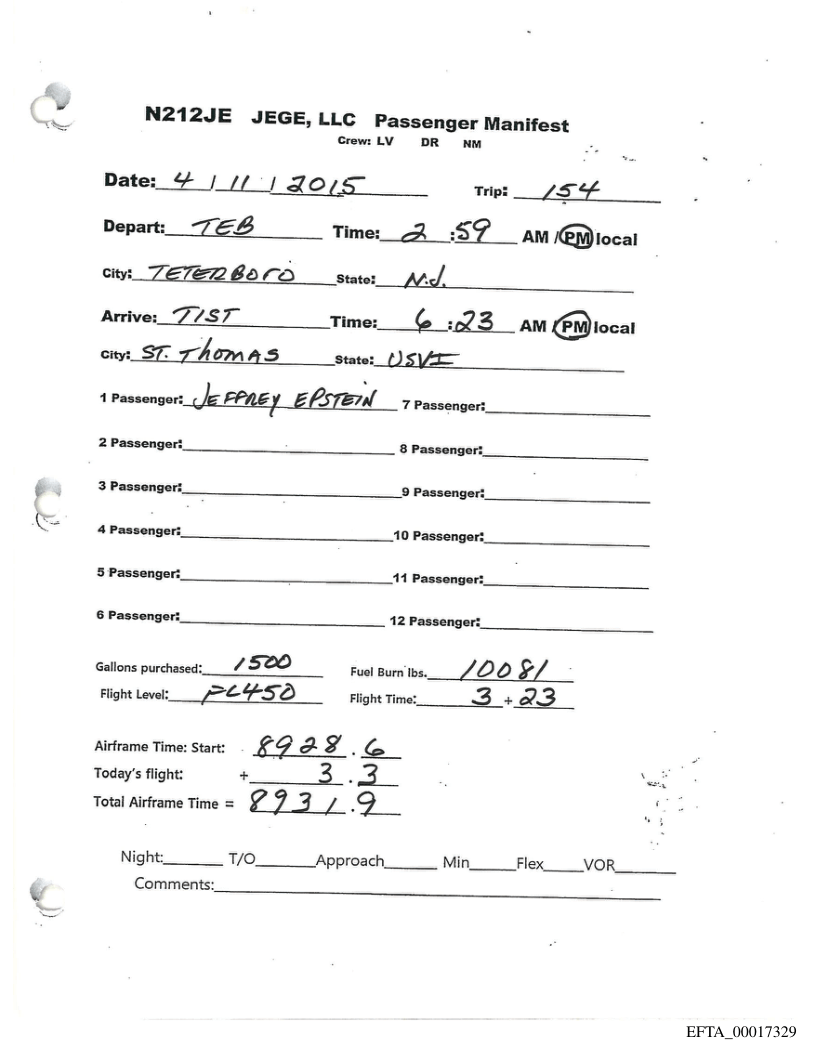 N212JE JEGE, LLC Passenger Manifest
Crew: LV DR NM
Date: 4 / 11 / 2015 Trip: 154
Depart: TEB Time: 2 :59 AM / PM local
City: TETERBORO State: N.J.
Arrive: TIST Time: 6 :23 AM / PM local
City: ST. THOMAS State: USVI
1 Passenger: JEFFREY EPSTEIN 7 Passenger:
2 Passenger: 8 Passenger:
3 Passenger: 9 Passenger:
4 Passenger: 10 Passenger:
5 Passenger: 11 Passenger:
6 Passenger: 12 Passenger:
Gallons purchased: 1500 Fuel Burn lbs. 10081
Flight Level: FL450 Flight Time: 3 + 23
Airframe Time: Start: 8928.6
Today's flight: + 3.3
Total Airframe Time = 8931.9
Night: T/O Approach Min Flex VOR
Comments:
EFTA_00017329